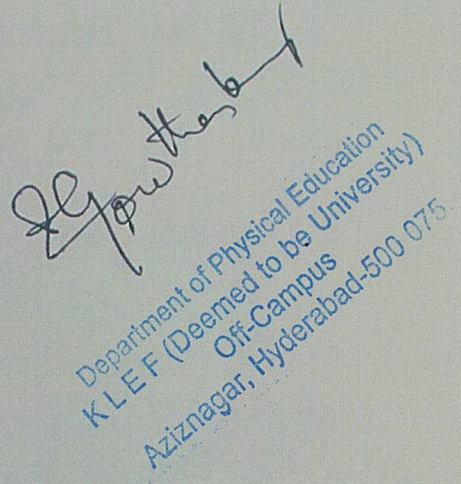 Department of Physical Education
K L E F (Deemed to be University)
Off-Campus
Aziznagar, Hyderabad-500 075.